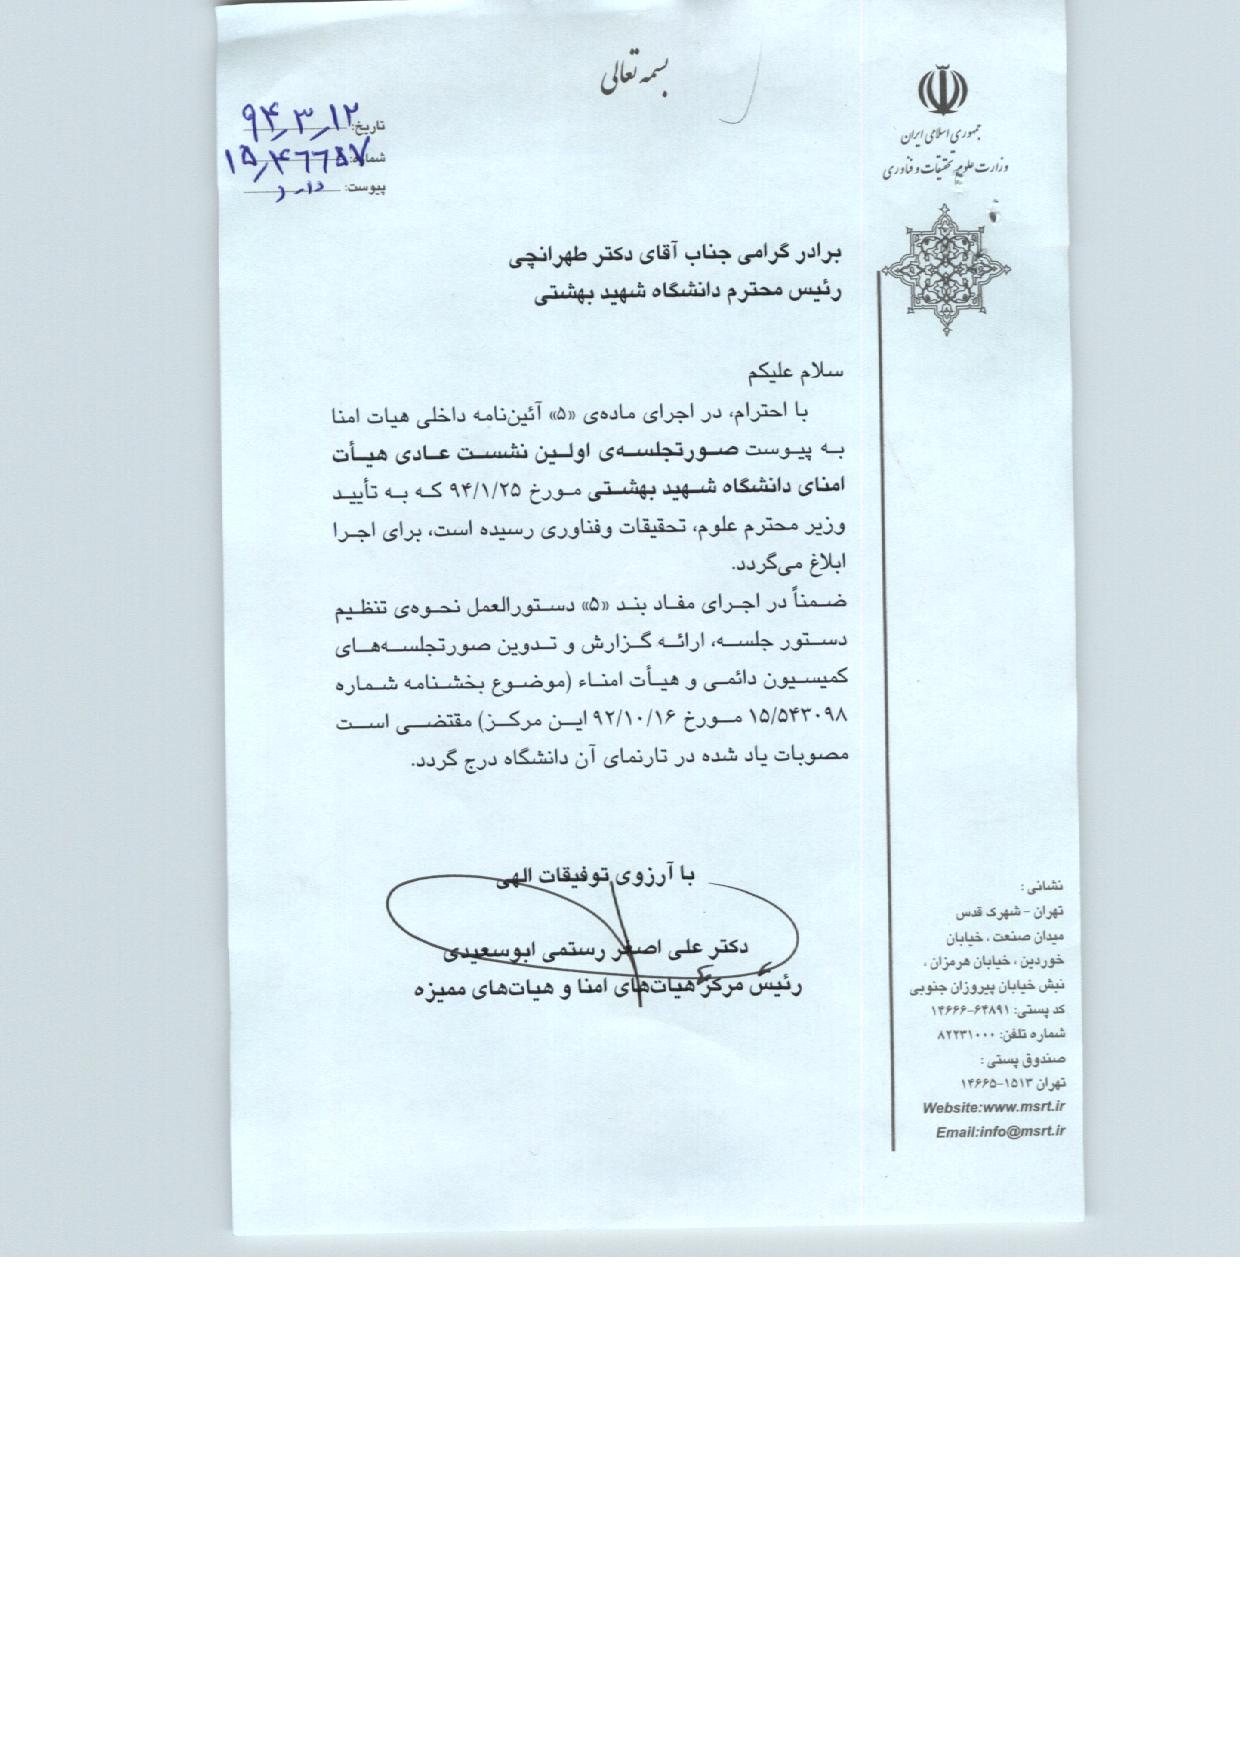 بسمه تعالی
جمهوری اسلامی ایران
وزارت علوم تحقیقات و فناوری
تاریخ: ۹۴٫۳٫۱۲
شماره: ۱۵٫۴۶۶۵۷
پیوست: دارد
برادر گرامی جناب آقای دکتر طهرانچی
رئیس محترم دانشگاه شهید بهشتی
سلام علیکم
با احترام، در اجرای ماده‌ی «۵» آئین‌نامه داخلی هیات امنا
به پیوست صورتجلسه‌ی اولین نشست عادی هیأت
امنای دانشگاه شهید بهشتی مورخ ۹۴/۱/۲۵ که به تأیید
وزیر محترم علوم، تحقیقات وفناوری رسیده است، برای اجرا
ابلاغ می‌گردد.
ضمناً در اجرای مفاد بند «۵» دستورالعمل نحوه‌ی تنظیم
دستور جلسه، ارائه گزارش و تدوین صورتجلسه‌های
کمیسیون دائمی و هیأت امناء (موضوع بخشنامه شماره
۱۵/۵۴۳۰۹۸ مورخ ۹۲/۱۰/۱۶ این مرکز) مقتضی است
مصوبات یاد شده در تارنمای آن دانشگاه درج گردد.
با آرزوی توفیقات الهی
دکتر علی اصغر رستمی ابوسعیدی
رئیس مرکز هیات‌های امنا و هیات‌های ممیزه
نشانی :
تهران - شهرک قدس
میدان صنعت ، خیابان
خوردین ، خیابان هرمزان ،
نبش خیابان پیروزان جنوبی
کد پستی: ۶۴۸۹۱-۱۴۶۶۶
شماره تلفن: ۸۲۲۳۱۰۰۰
صندوق پستی :
تهران ۱۵۱۳-۱۴۶۶۵
Website:www.msrt.ir
Email:info@msrt.ir